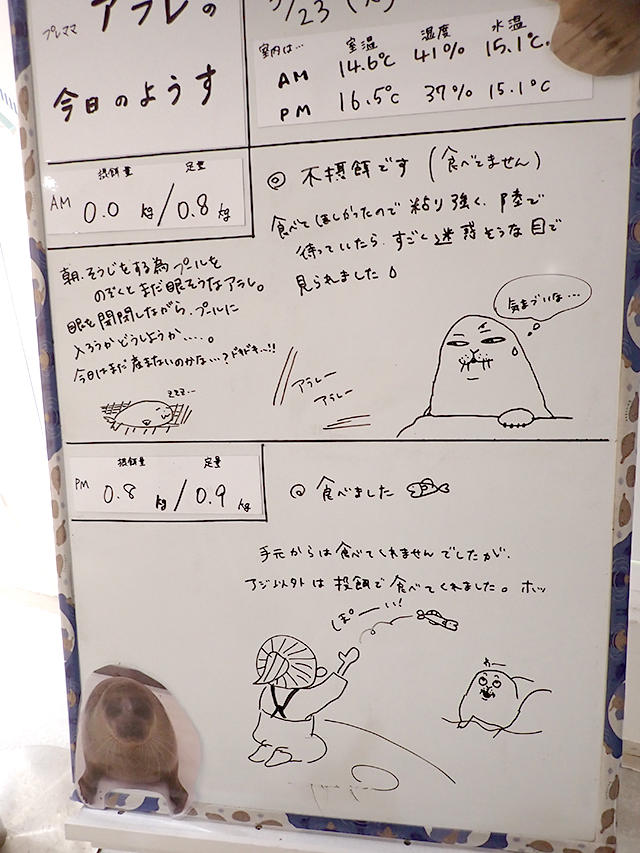 プレママ
アラレの
今日のようす
3/23
室内は…
室温
湿度
水温
AM
14.6℃
41%
15.1℃
PM
16.5℃
37%
15.1℃
AM
摂餌量
定量
0.0 kg/0.8 kg
◎ 不摂餌です (食べてません)
食べてほしかったので粘り強く、陸で
待っていたら、すごく迷惑そうな目で
見られました
気まづいな…
朝、そうじをする為プールを
のぞくとまだ眠そうなアラレ。
眼を開閉しながら、プールに
入ろうかどうしようか‥‥。
今日はまだ産まないのかな…?ドキドキ…!!
zzz…
アラレー
アラレー
PM
摂餌量
定量
0.8 kg/0.9 kg
◎ 食べました
手元からは食べてくれませんでしたが、
アジ以外は投餌で食べてくれました。ホッ
ぽーい!
わー